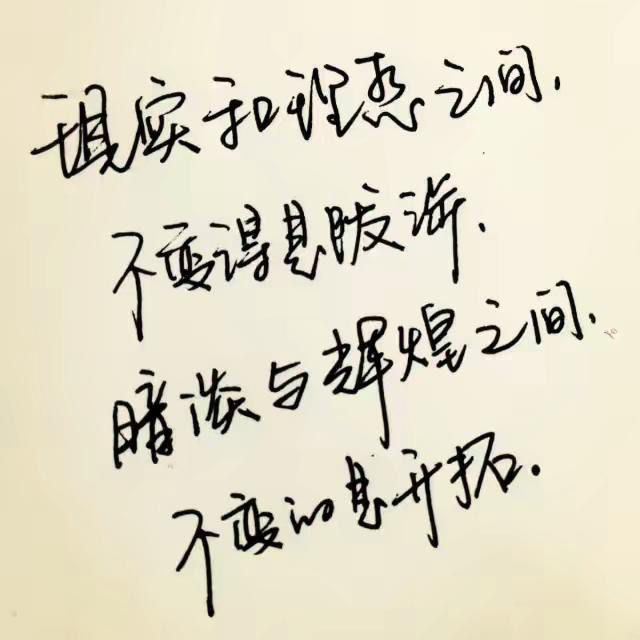 现实和理想之间.
不变得是跋涉.
暗淡与辉煌之间.
不变的是开拓.